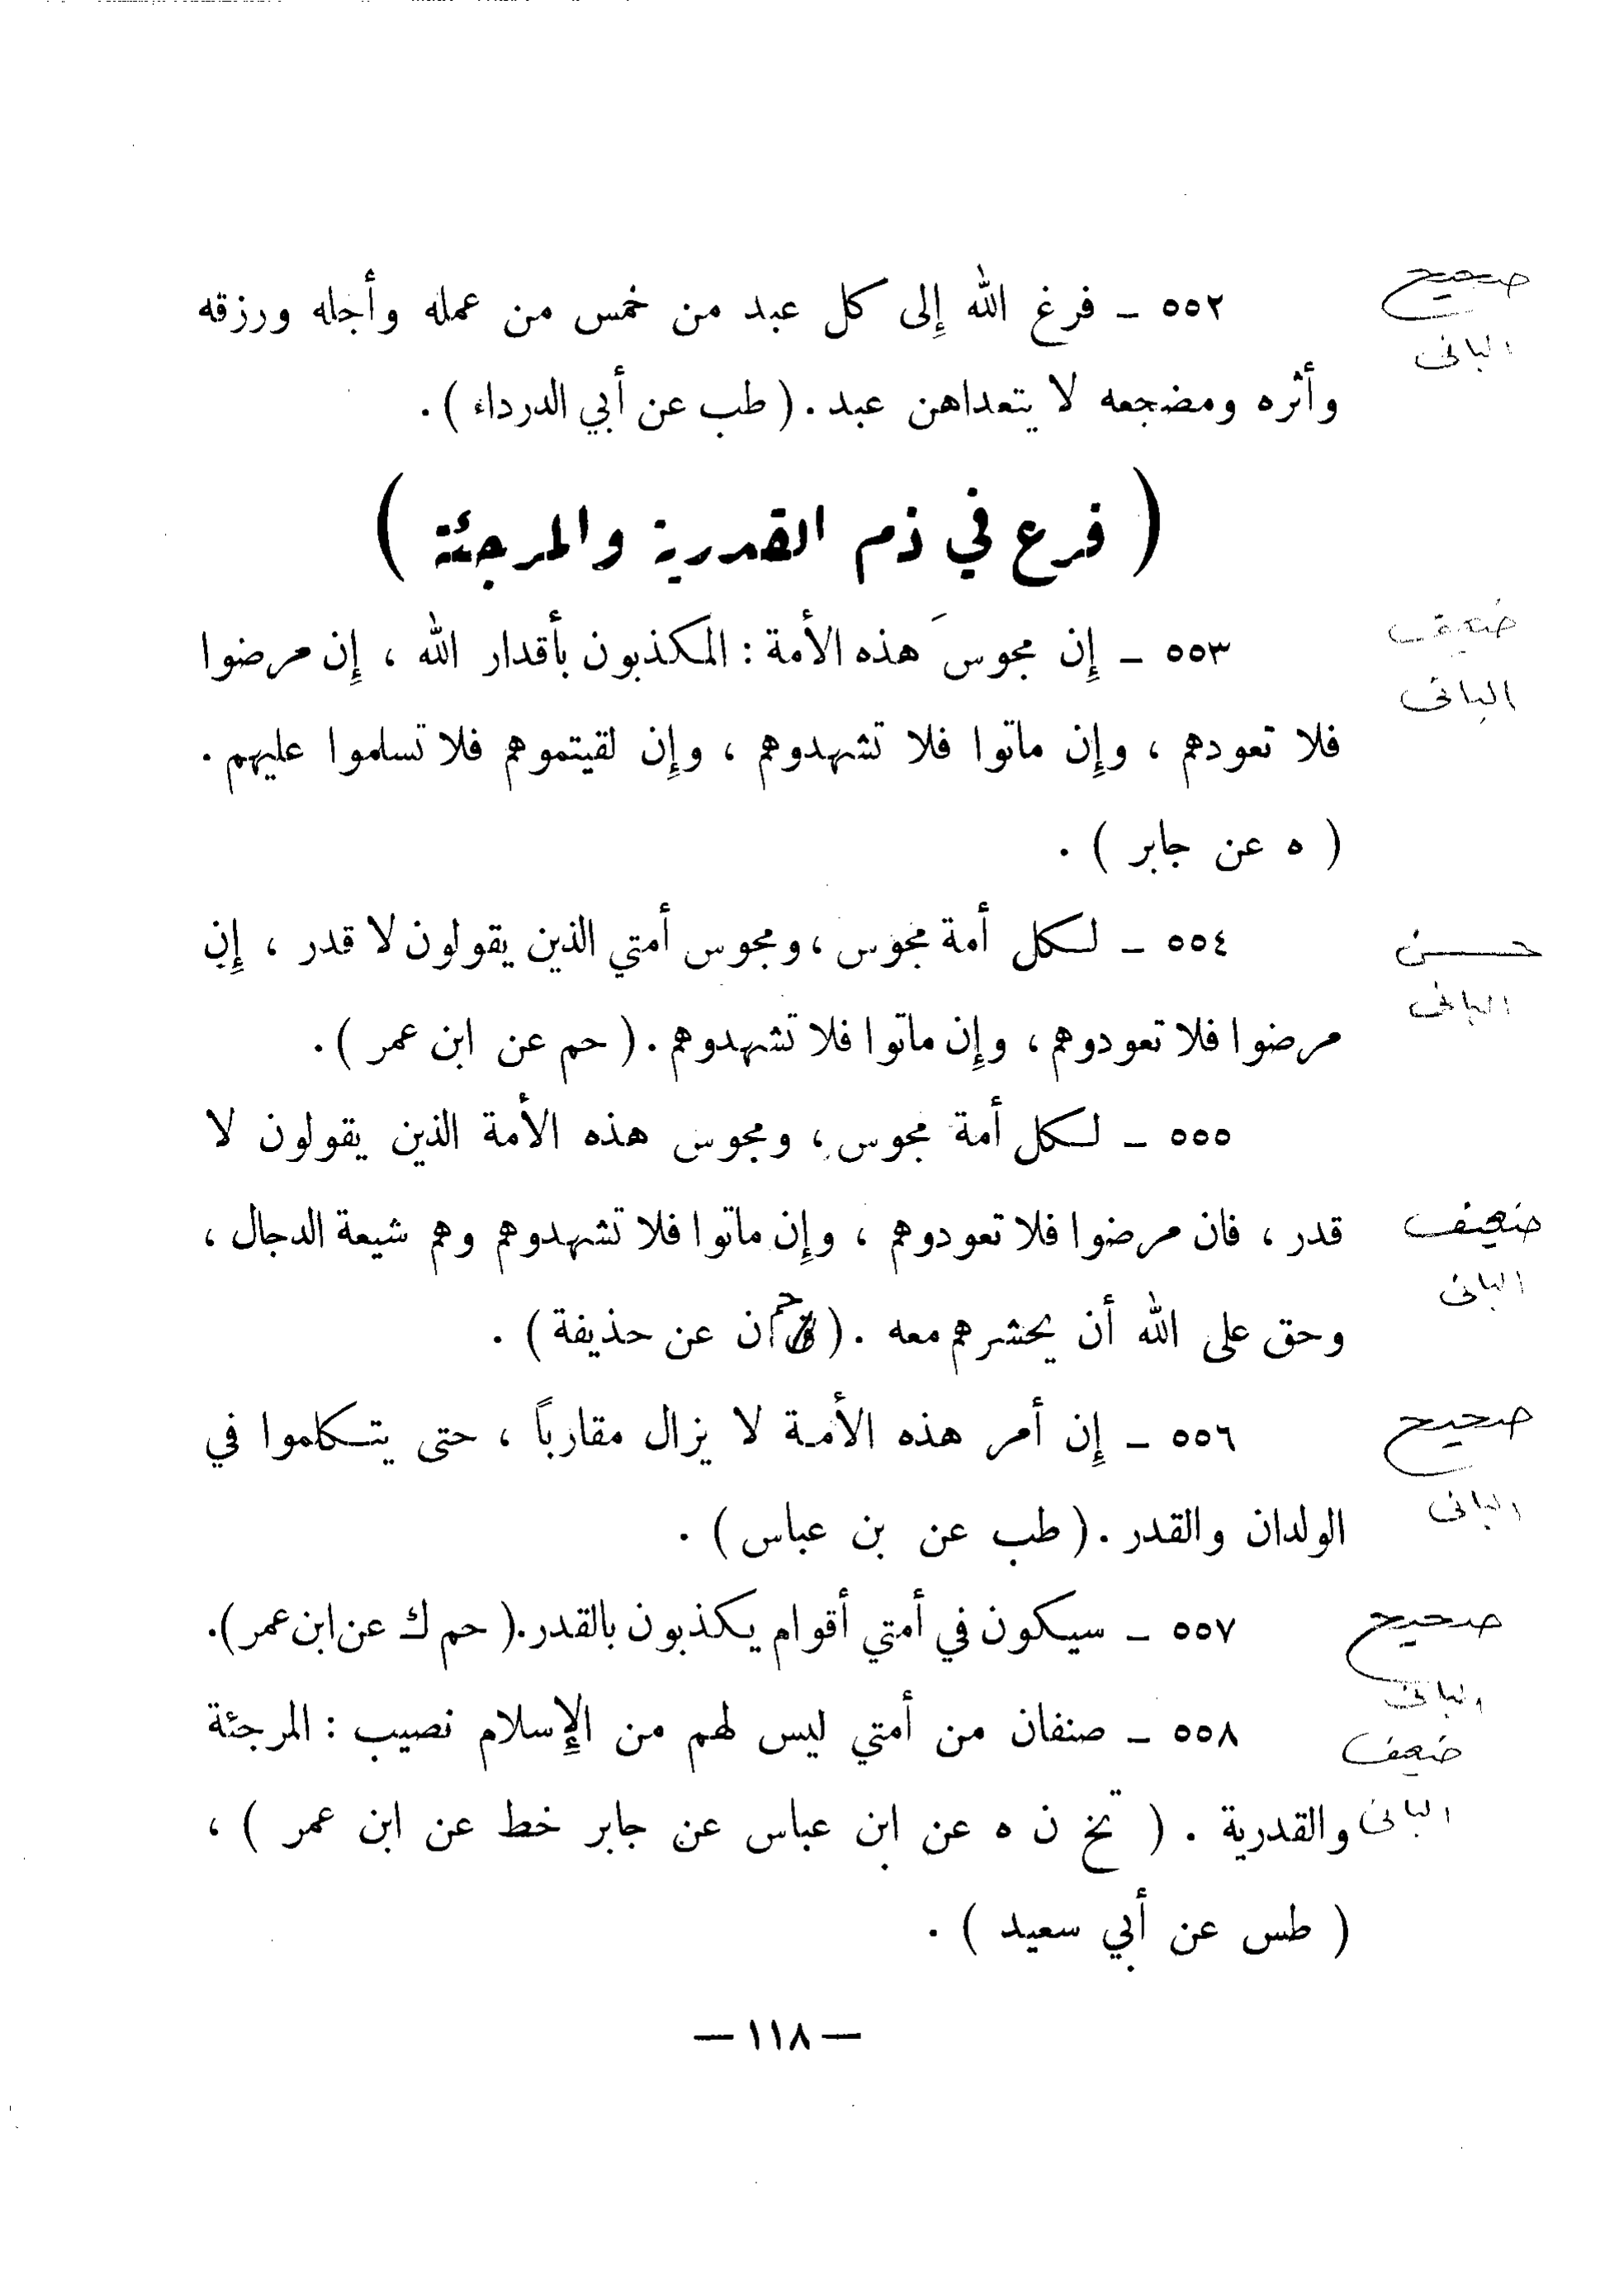 ٥٥٢ ـ فرغ الله إِلى كل عبد من خمس من عمله وأجله ورزقه
صحيح
البانى
وأثره ومضجعه لا يتعداهن عبد . ( طب عن أبي الدرداء ) .
( فرع في ذم القدرية والمرجئة )
٥٥٣ ـ إِن مجوسَ هذه الأمة : المكذبون بأقدار الله ، إِن مرضوا
ضعيف
البانى
فلا تعودهم ، وإِن ماتوا فلا تشهدوهم ، وإِن لقيتموهم فلا تسلموا عليهم .
( ه عن جابر ) .
٥٥٤ ـ لكل أمة مجوس ، ومجوس أمتي الذين يقولون لا قدر ، إِن
حسن
البانى
مرضوا فلا تعودوهم ، وإِن ماتوا فلا تشهدوهم . ( حم عن ابن عمر ) .
٥٥٥ ـ لكل أمة مجوس ، ومجوس هذه الأمة الذين يقولون لا
قدر ، فان مرضوا فلا تعودوهم ، وإِن ماتوا فلا تشهدوهم وهم شيعة الدجال ،
ضعيف
البانى
وحق على الله أن يحشرهم معه . ( عن حذيفة ) .
٥٥٦ ـ إِن أمر هذه الأمة لا يزال مقارباً ، حتى يتكلموا في
صحيح
البانى
الولدان والقدر . ( طب عن بن عباس ) .
٥٥٧ ـ سيكون في أمتي أقوام يكذبون بالقدر . ( حم ك عن ابن عمر ) .
صحيح
البانى
٥٥٨ ـ صنفان من أمتي ليس لهم من الإِسلام نصيب : المرجئة
ضعيف
البانى
والقدرية . ( تخ ن ه عن ابن عباس عن جابر خط عن ابن عمر ) ،
( طس عن أبي سعيد ) .
— ١١٨ —